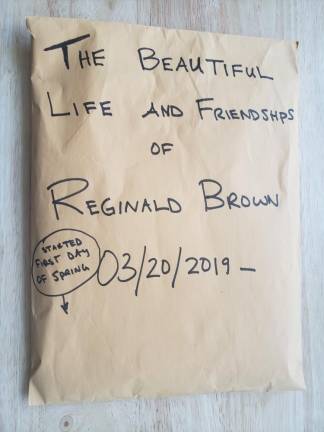 THE BEAUTIFUL
LIFE AND FRIENDSHPS
OF
REGINALD BROWN
STARTED
FIRST DAY
OF SPRING
03/20/2019-